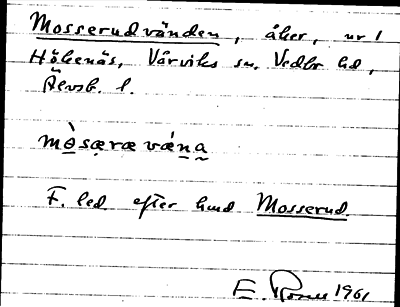 Mosserudvänden, åker, nr 1
Hökenäs, Vårviks sn. Vedbo hd,
Älvsb. l.
mòsæræ váṉa̰
F. led efter lund Mosserud.
E. 1961